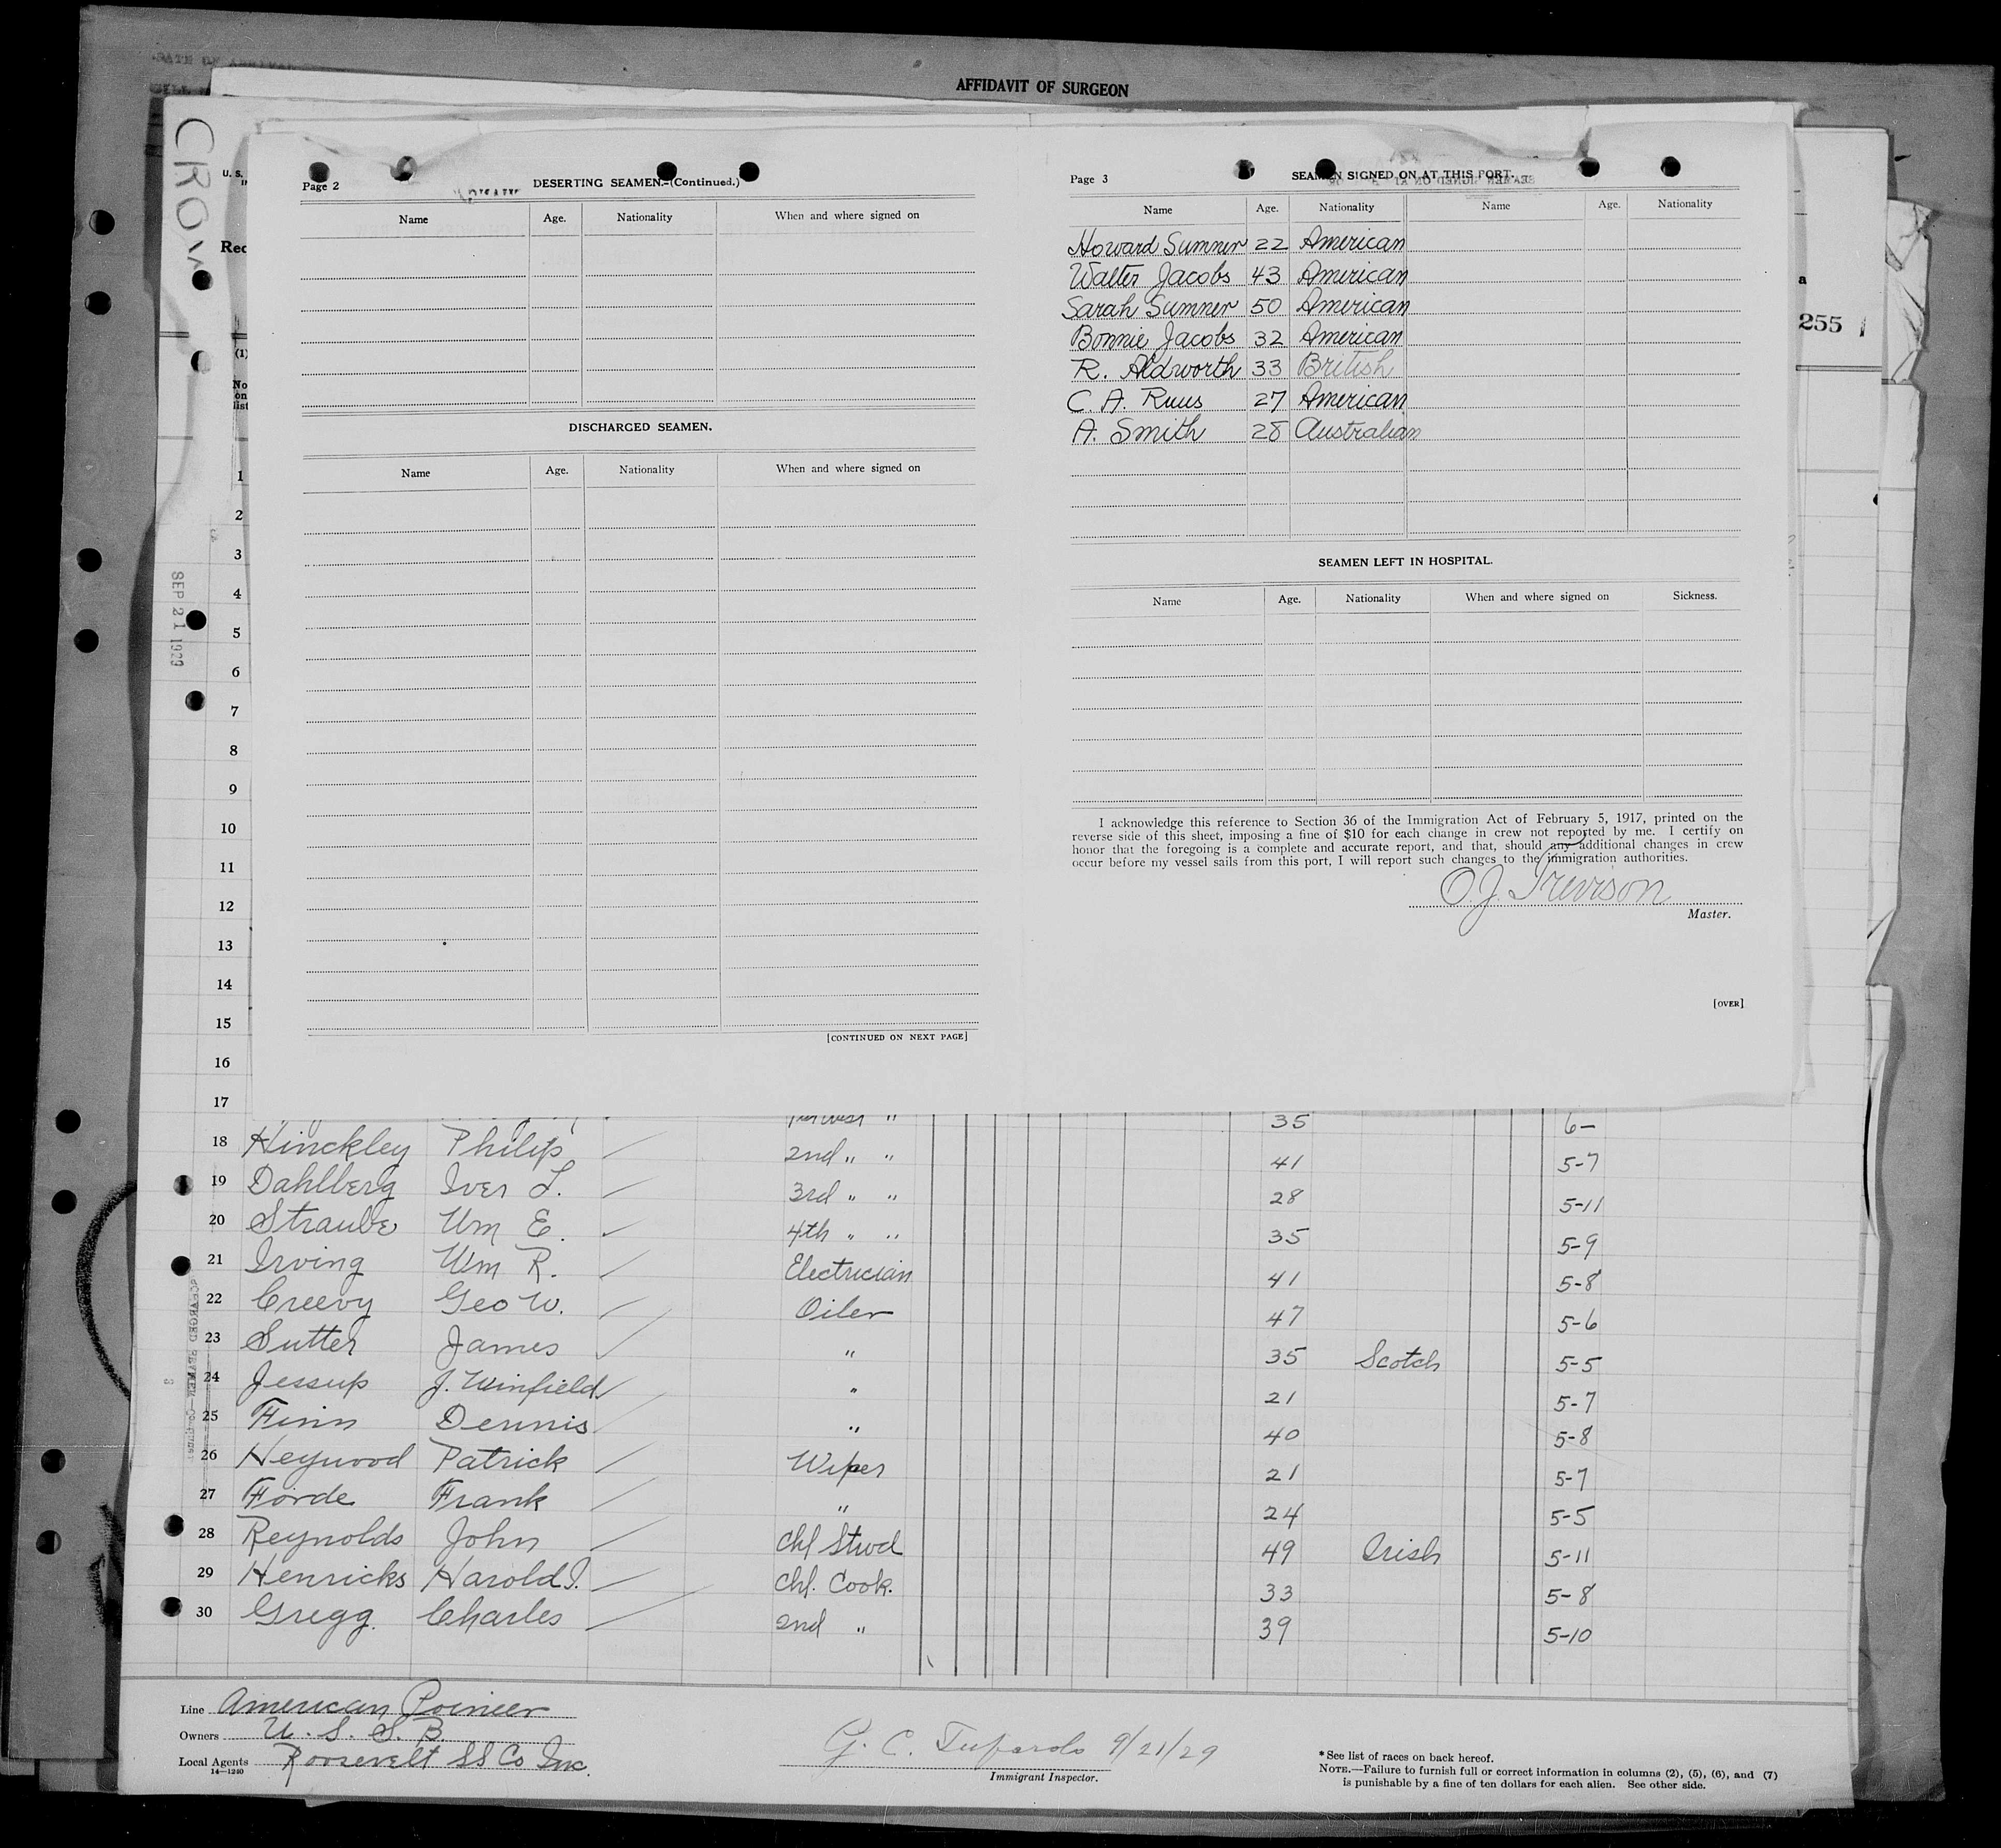 AFFIDAVIT OF SURGEON
CROW
U. S.
Rec
(1)
No
on
list
SEP 21 1929
255
a
Page 2
DESERTING SEAMEN.—(Continued.)
Name Age. Nationality When and where signed on
DISCHARGED SEAMEN.
Name Age. Nationality When and where signed on
[CONTINUED ON NEXT PAGE]
Page 3
SEAMEN SIGNED ON AT THIS PORT.
Name Age. Nationality Name Age. Nationality
Howard Sumner 22 American
Walter Jacobs 43 American
Sarah Sumner 50 American
Bonnie Jacobs 32 American
R. Aldworth 33 British
C. A. Ruus 27 American
A. Smith 28 Australian
SEAMEN LEFT IN HOSPITAL.
Name Age. Nationality When and where signed on Sickness.
I acknowledge this reference to Section 36 of the Immigration Act of February 5, 1917, printed on the
reverse side of this sheet, imposing a fine of $10 for each change in crew not reported by me. I certify on
honor that the foregoing is a complete and accurate report, and that, should any additional changes in crew
occur before my vessel sails from this port, I will report such changes to the immigration authorities.
O. J.
Master.
[OVER]
1
2
3
4
5
6
7
8
9
10
11
12
13
14
15
16
17 35 6-
18 Hinckley Philip 2nd " " 41 5-7
19 Dahlberg Iver L. 3rd " " 28 5-11
20 Straube Wm E. 4th " " 35 5-9
21 Irving Wm R. Electrician 41 5-8
22 Creevy Geo W. Oiler 47 5-6
23 Sutter James " 35 Scotch 5-5
24 Jessup J. Winfield " 21 5-7
25 Finn Dennis " 40 5-8
26 Heywood Patrick Wiper 21 5-7
27 Forde Frank " 24 5-5
28 Reynolds John Chf Stwd 49 Irish 5-11
29 Henricks Harold J. Chf. Cook. 33 5-8
30 Gregg. Charles 2nd " 39 5-10
Line American Poineer
Owners U. S. S. B.
Local Agents Roosevelt SS Co Inc.
14—1240
G. C. 9/21/29
Immigrant Inspector.
* See list of races on back hereof.
NOTE.—Failure to furnish full or correct information in columns (2), (5), (6), and (7)
is punishable by a fine of ten dollars for each alien. See other side.